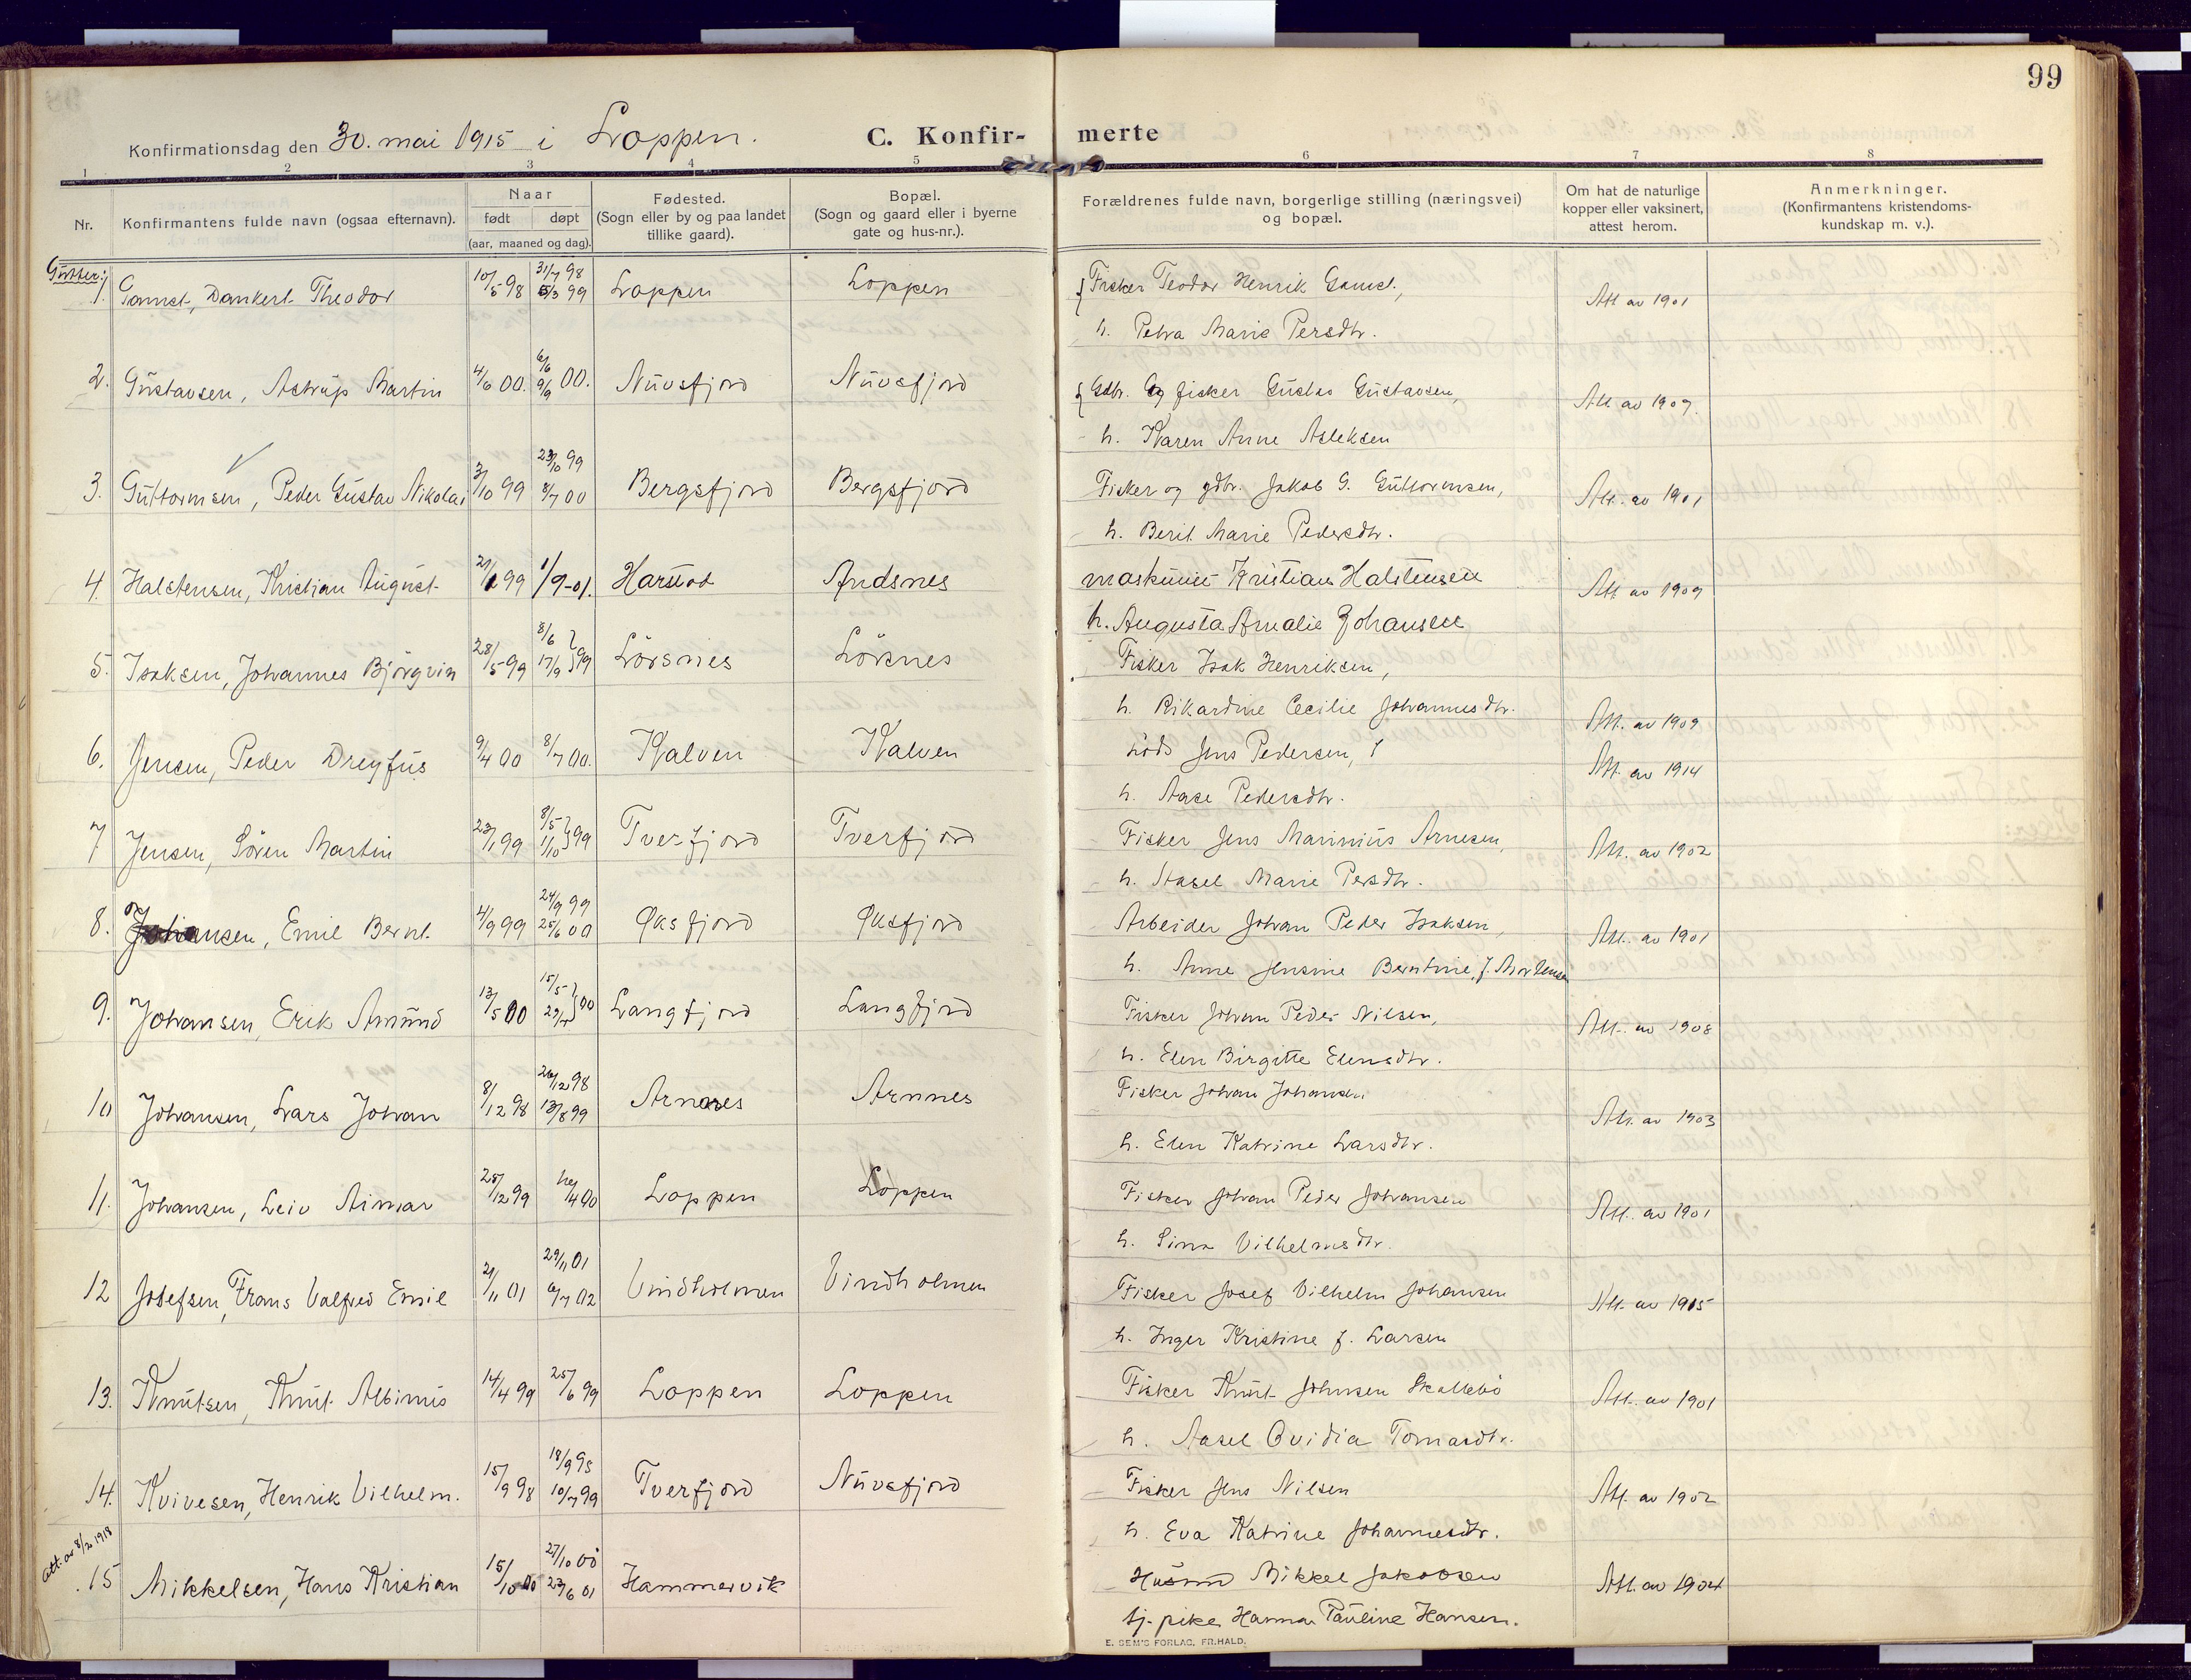 99
Konfirmationsdag den 30. mai 1915 i Loppen. C. Konfir- merte
1 2 3 4 5 6 7 8
Nr. Konfirmantens fulde navn (ogsaa efternavn). Naar født døpt (aar, maaned og dag). Fødested. (Sogn eller by og paa landet tillike gaard). Bopæl. (Sogn og gaard eller i byerne gate og hus-nr.). Forældrenes fulde navn, borgerlige stilling (næringsvei) og bopæl. Om hat de naturlige kopper eller vaksinert, attest herom. Anmerkninger. (Konfirmantens kristendoms- kundskap m. v.).
Gutter:
1. Gamst, Dankert Theodor 10/5 98 31/7 98 5/3 99 Loppen Loppen Fisker Teodor Henrik Gamst, Att. av 1901
h. Petra Marie Persdtr.
2. Gustavsen, Astrup Martin 4/6 00. 6/6 9/9 00. Nuvsfjord Nuvsfjord Gdbr. og fisker Gustav Gustavsen, Att. av 1907.
h. Karen Anne Asleksen
3. Guttormsen, Peder Gustav Nikolai 3/10 99 23/10 99 8/7 00 Bergsfjord Bergsfjord Fisker og gdbr. Jakob G. Guttormsen, Att. av 1901
h. Berit Marie Pedersdtr.
4. Halstensen, Kristian August 99 1/9-01. Andsnes Kristian Halstensen Att. av 1909
h. Augusta Amalie Johansen
5. Isaksen, Johannes Bjørgvin 28/5 99 8/6 17/9 } 99 Fisker Isak Henriksen,
h. Rikardine Cecilie Johannesdtr. Att. av 1909
6. Jensen, Peder Dreyfus 9/4 00 8/7 00. Kalven Kalven Lods Jens Pedersen, Att. av 1914
h. Aase Pedersdtr.
7 Jensen, Søren Martin 23/1 99 8/5 1/10 } 99 Tverfjord Tverfjord Fisker Jens Marinius Arnesen, Att. av 1902
h. Aasel Marie Persdtr.
8. Emil Bernt. 4/9 99 24/9 99 25/6 00 Øksfjord Øksfjord Arbeider Johan Peder Isaksen, Att. av 1901
h. Anne Jensine Berntine, f. Mortensen
9. Johansen, Erik Amund 13/5 00 15/5 29/7 } 00 Langfjord Langfjord Fisker Johan Peder Nilsen, Att. av 1908
h. Elen Birgitte Elensdtr.
10 Johansen, Lars Johan 8/12 98 26/12 98 13/8 99 Arnnes Arnnes Fisker Johan Johansen Att. av 1903
h. Elen Katrine Larsdtr.
11. Johansen, Leiv Aimar 25/12 99 4 00 Loppen Loppen Fisker Johan Peder Johansen Att. av 1901
h. Sina Vilhelmsdtr.
12 Josefsen, Frans Valfred Emil 2/11 01 29/11 01 6/7 02 Vindholmen Vindholmen Fisker Josef Vilhelm Johansen Att. av 1915
h. Inger Kristine f. Larsen
13. Knutsen, Knut Albinus 14/4 99 25/6 99 Loppen Loppen Fisker Knut Johnsen Skallebø Att. av 1901
h. Aasel Ovidia Tomasdtr.
14. Kvivesen, Henrik Vilhelm. 15/9 98 18/9 98 10/7 99 Tverfjord Nuvsfjord Fisker Jens Nilsen Att. av 1902
h. Eva Katrine Johannesdtr.
Att. av 8/2 1918
15 Mikkelsen, Hans Kristian 15/10 00 27/10 00 23/6 01 Hammervik Husmd Mikkel Jakobsen Att. av 1904
tj. pike Hanna Pauline Hansen.
E. SEM'S FORLAG, FR.HALD.